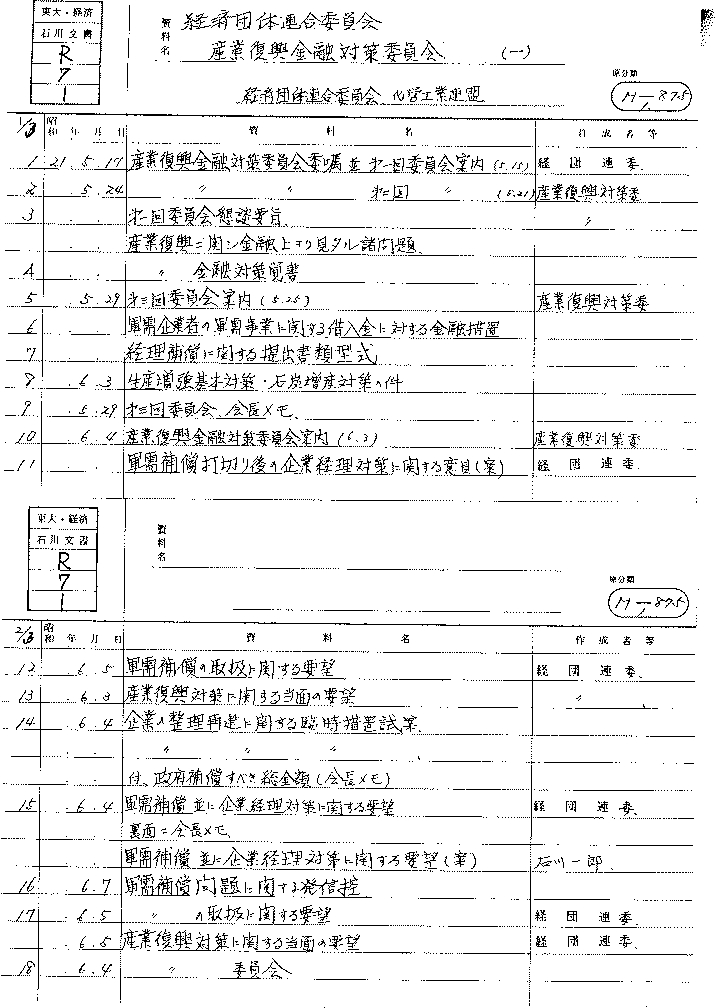 東大・経済
石川文書
R
7
1
資料名 経済団体連合委員会
産業復興金融対策委員会 (一)
経済団体連合委員会 化学工業連盟
原分類
H-1, 875
1/3 昭和 年 月 日 資料名 作成者等
1 21. 5. 17 産業復興金融対策委員会委嘱並 オ一回委員会案内 (5.15) 経団連委
2 5. 24 〃 〃 オ二回 〃 (5.21) 産業復興対策委
3 . . オ一回委員会懇談要旨 〃
産業復興ニ関シ金融上ヨリ見タル諸問題
4 . . 〃 金融対策覚書
5 . 5. 29 オ三回委員会案内 (5.25) 産業復興対策委
6 . . 軍需企業者の軍需事業に関する借入金に対する金融措置
7 . . 経理補償に関する提出書類型式
8 . 6. 3 生産増強基本対策・石炭増産対策の件
9 . 5. 29 オ三回委員会、会長メモ
10 . 6. 4 産業復興金融対策委員会案内 (6.2) 産業復興対策委
11 . . 軍需補償打切り後の企業経理対策に関する要目(案) 経団連委
東大・経済
石川文書
R
7
1
資料名
原分類
H-1, 875
2/3 昭和 年 月 日 資料名 作成者等
12 . 6. 5 軍需補償の取扱に関する要望 経団連委.
13 . 6. 3 産業復興対策に関する当面の要望 〃
14 . 6. 4 企業の整理再建に関する臨時措置試案
. . 〃 〃 〃
. . 付、政府補償すべき総金額(会長メモ)
15 . 6. 4 軍需補償並に企業経理対策に関する要望 経団連委.
裏面=会長メモ
軍需補償並に企業経理対策に関する要望(案) 石川一郎.
16 6. 7 軍需補償問題に関する発信控
17 . 6. 5 〃 の取扱に関する要望 経団連委.
. 6. 5 産業復興対策に関する当面の要望 経団連委.
18 . 6. 4 〃 委員会